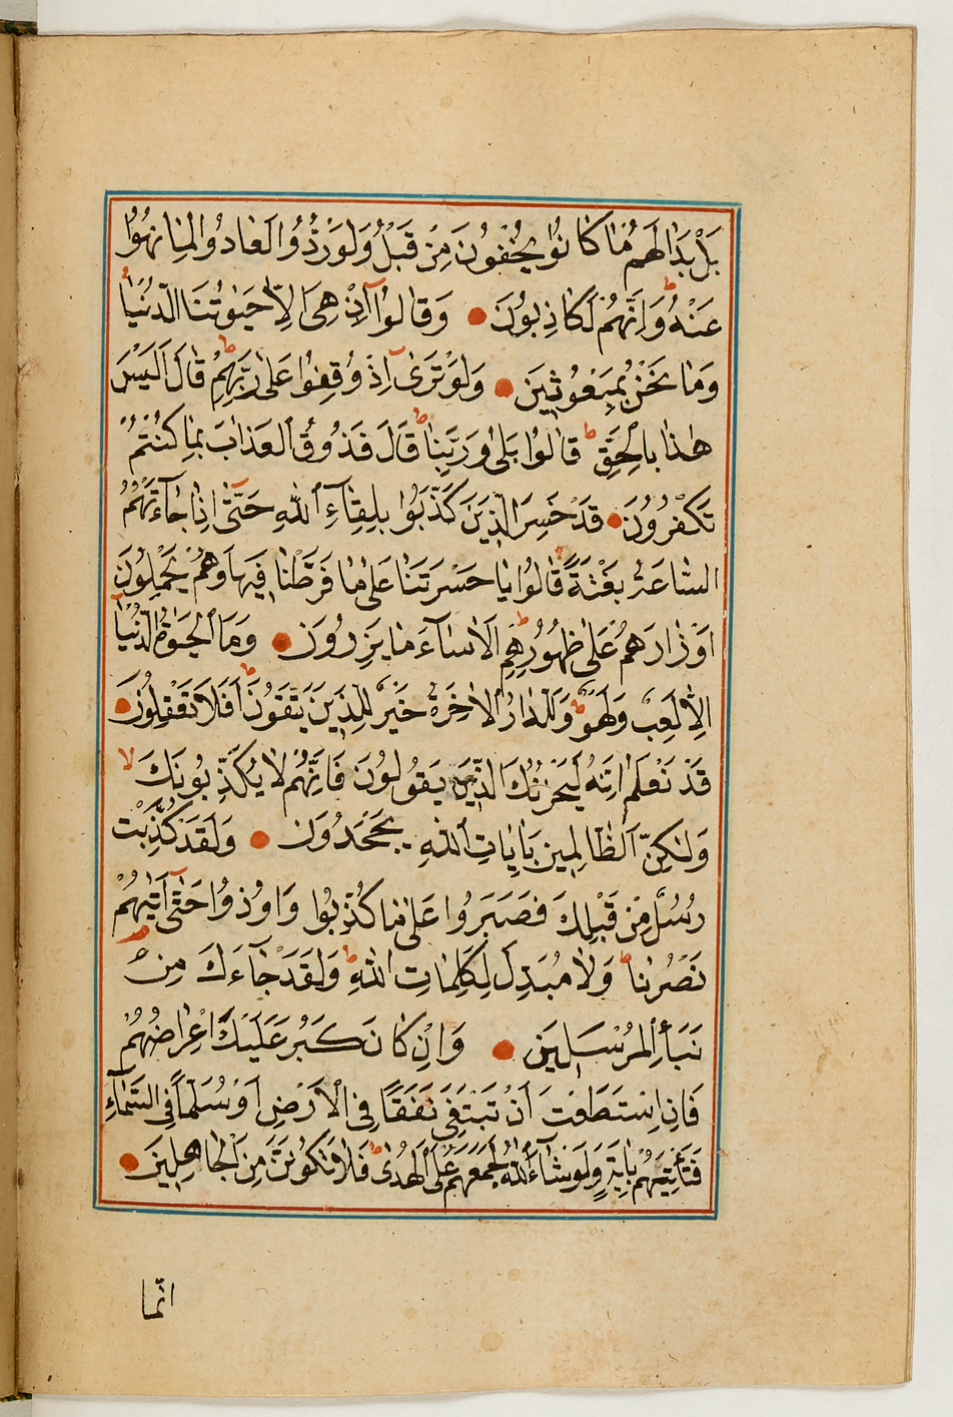 بَلْ بَدَا لَهُمْ مَا كَانُوا يُخْفُونَ مِنْ قَبْلُ وَلَوْ رُدُّوا لَعَادُوا لِمَا نُهُوا
عَنْهُ وَاِنَّهُمْ لَكَاذِبُونَ وَقَالُوا اِنْ هِيَ اِلَّا حَيٰوتُنَا الدُّنْيَا
وَمَا نَحْنُ بِمَبْعُوثِينَ وَلَوْ تَرٰى اِذْ وُقِفُوا عَلٰى رَبِّهِمْ قَالَ اَلَيْسَ
هٰذَا بِالْحَقِّ قَالُوا بَلٰى وَرَبِّنَا قَالَ فَذُوقُوا الْعَذَابَ بِمَا كُنْتُمْ
تَكْفُرُونَ قَدْ خَسِرَ الَّذِينَ كَذَّبُوا بِلِقَاءِ اللّٰهِ حَتّٰى اِذَا جَاءَتْهُمُ
السَّاعَةُ بَغْتَةً قَالُوا يَا حَسْرَتَنَا عَلٰى مَا فَرَّطْنَا فِيهَا وَهُمْ يَحْمِلُونَ
اَوْزَارَهُمْ عَلٰى ظُهُورِهِمْ اَلَا سَاءَ مَا يَزِرُونَ وَمَا الْحَيٰوةُ الدُّنْيَا
اِلَّا لَعِبٌ وَلَهْوٌ وَلَلدَّارُ الْاٰخِرَةُ خَيْرٌ لِلَّذِينَ يَتَّقُونَ اَفَلَا تَعْقِلُونَ
قَدْ نَعْلَمُ اِنَّهُ لَيَحْزُنُكَ الَّذِي يَقُولُونَ فَاِنَّهُمْ لَا يُكَذِّبُونَكَ لا
وَلٰكِنَّ الظَّالِمِينَ بِاٰيَاتِ اللّٰهِ يَجْحَدُونَ وَلَقَدْ كُذِّبَتْ
رُسُلٌ مِنْ قَبْلِكَ فَصَبَرُوا عَلٰى مَا كُذِّبُوا وَاُوذُوا حَتّٰى اَتٰيهُمْ
نَصْرُنَا وَلَا مُبَدِّلَ لِكَلِمَاتِ اللّٰهِ وَلَقَدْ جَاءَكَ مِنْ
نَبَاِ الْمُرْسَلِينَ وَاِنْ كَانَ كَبُرَ عَلَيْكَ اِعْرَاضُهُمْ
فَاِنِ اسْتَطَعْتَ اَنْ تَبْتَغِيَ نَفَقًا فِي الْاَرْضِ اَوْ سُلَّمًا فِي السَّمَاءِ
فَتَاْتِيَهُمْ بِاٰيَةٍ وَلَوْ شَاءَ اللّٰهُ لَجَمَعَهُمْ عَلَى الْهُدٰى فَلَا تَكُونَنَّ مِنَ الْجَاهِلِينَ
انّما